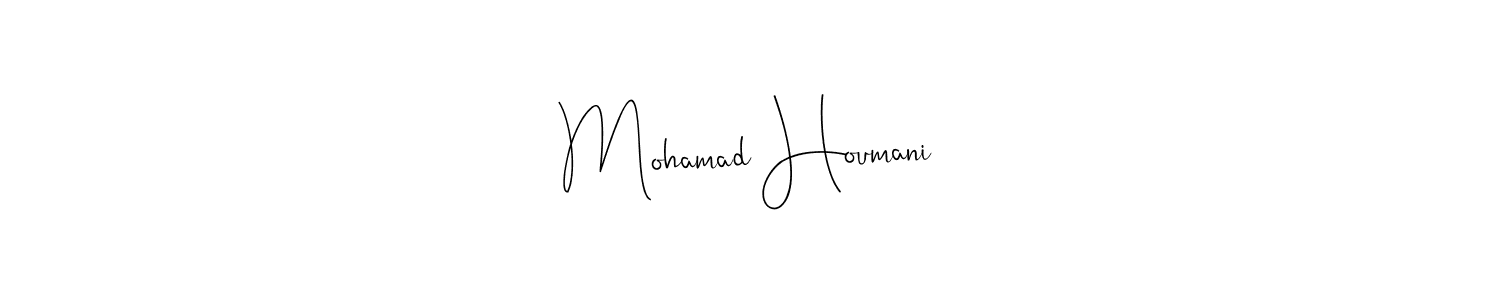 Mohamad Houmani